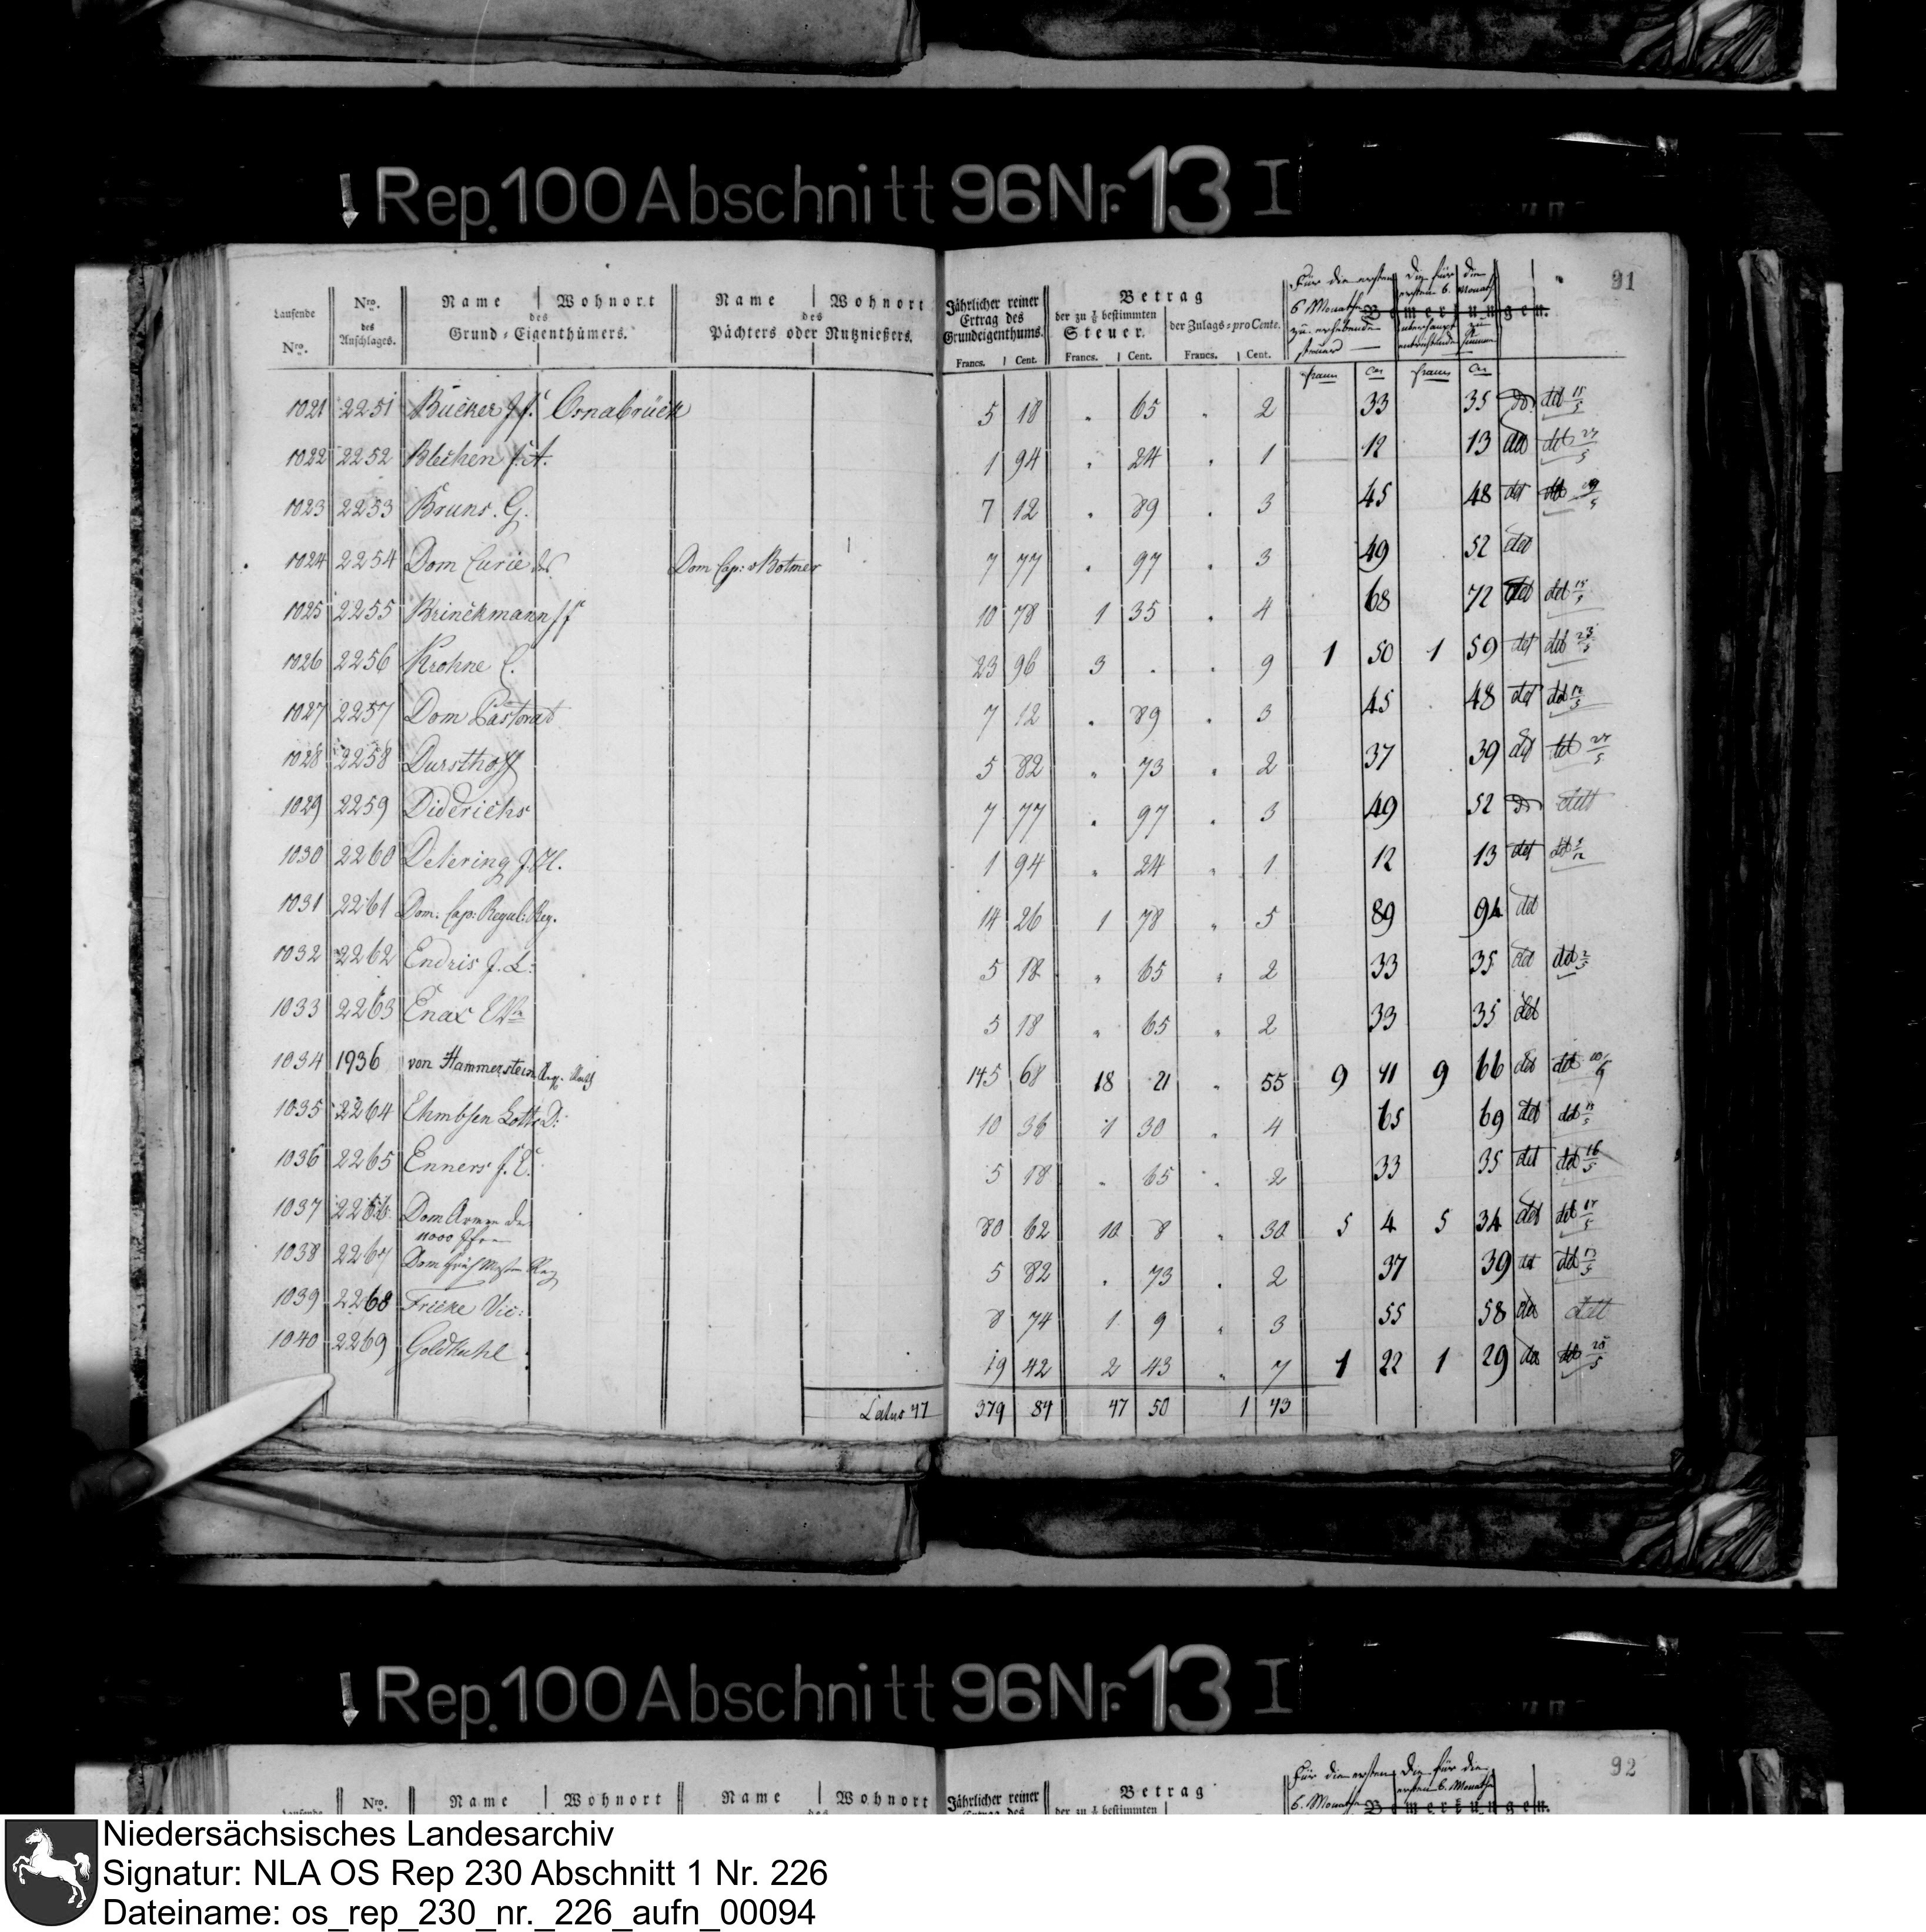 Rep. 100 Abschnitt 96 Nr. 13 I
91
Laufende Nro.
Nro. des Anschlages.
Name Wohnort des Grund-Eigenthümers.
Name Wohnort des Pächters oder Nutznießers.
Jährlicher reiner Ertrag des Grundeigenthums. Francs. Cent.
Betrag
der zu 1/8 bestimmten Steuer. Francs. Cent.
der Zulags-pro Cente. Francs. Cent.
Für die ersten 6 Monathe zu erhebende Steuer
Die für die ersten 6. Monathe überhaupt zu entrichtende Summe
Bemerkungen.
francs Cts francs Cts
1021 2251 Bücker J. F. Osnabrück 5 18 " 65 " 2 33 35 do ddt 15/5
1022 2252 Blechen J. A. 1 94 " 24 " 1 12 13 ddt ddt 27/5
1023 2253 Bruns. G. 7 12 " 89 " 3 45 48 ddt ddt 29/5
1024 2254 Dom Curie der Dom Cap: v Botmer 7 77 " 97 " 3 49 52 ddt
1025 2255 Brinckmann J F 10 78 1 35 " 4 68 72 ddt ddt 15/5
1026 2256 Krohne C. 23 96 3 " " 9 1 50 1 59 ddt ddt 23/5
1027 2257 Dom Pastorat 7 12 " 89 " 3 45 48 ddt ddt 12/5
1028 2258 Dursthoff 5 82 " 73 " 2 37 39 ddt ddt 27/5
1029 2259 Diderichs 7 77 " 97 " 3 49 52 do ddt
1030 2260 Detering J. H. 1 94 " 24 " 1 12 13 ddt ddt
1031 2261 Dom. Cap: Regul: Reg. 14 26 1 78 " 5 89 94 ddt
1032 2262 Endris J. L: 5 18 " 65 " 2 33 35 ddt ddt 2/5
1033 2263 Enax Ww 5 18 " 65 " 2 33 35 ddt
1034 1936 von Hammerstein 145 68 18 21 " 55 9 11 9 66 ddt ddt
1035 2264 Ehmbsen Lotte D: 10 36 1 30 " 4 65 69 ddt ddt 11/5
1036 2265 Enners J. C. 5 18 " 65 " 2 33 35 ddt ddt 16/5
1037 2266 Dom Armen der 80 62 10 8 " 30 5 4 5 34 ddt ddt 17/5
11000 Jfrn
1038 2267 Dom Reg 5 82 " 73 " 2 37 39 ddt ddt 12/5
1039 2268 Fricke Vic: 8 74 1 9 " 3 55 58 ddt ddt
1040 2269 Goldkuhl 19 42 2 43 " 7 1 22 1 29 ddt ddt 25/5
Latus 47 379 84 47 50 1 43
Rep. 100 Abschnitt 96 Nr. 13 I
92
Laufende
Nro.
Name Wohnort
Name Wohnort
Jährlicher reiner
Betrag
der zu 1/8 bestimmten
Für die ersten 6. Monathe
Die für die ersten 6. Monathe
Bemerkungen.
Niedersächsisches Landesarchiv
Signatur: NLA OS Rep 230 Abschnitt 1 Nr. 226
Dateiname: os_rep_230_nr._226_aufn_00094